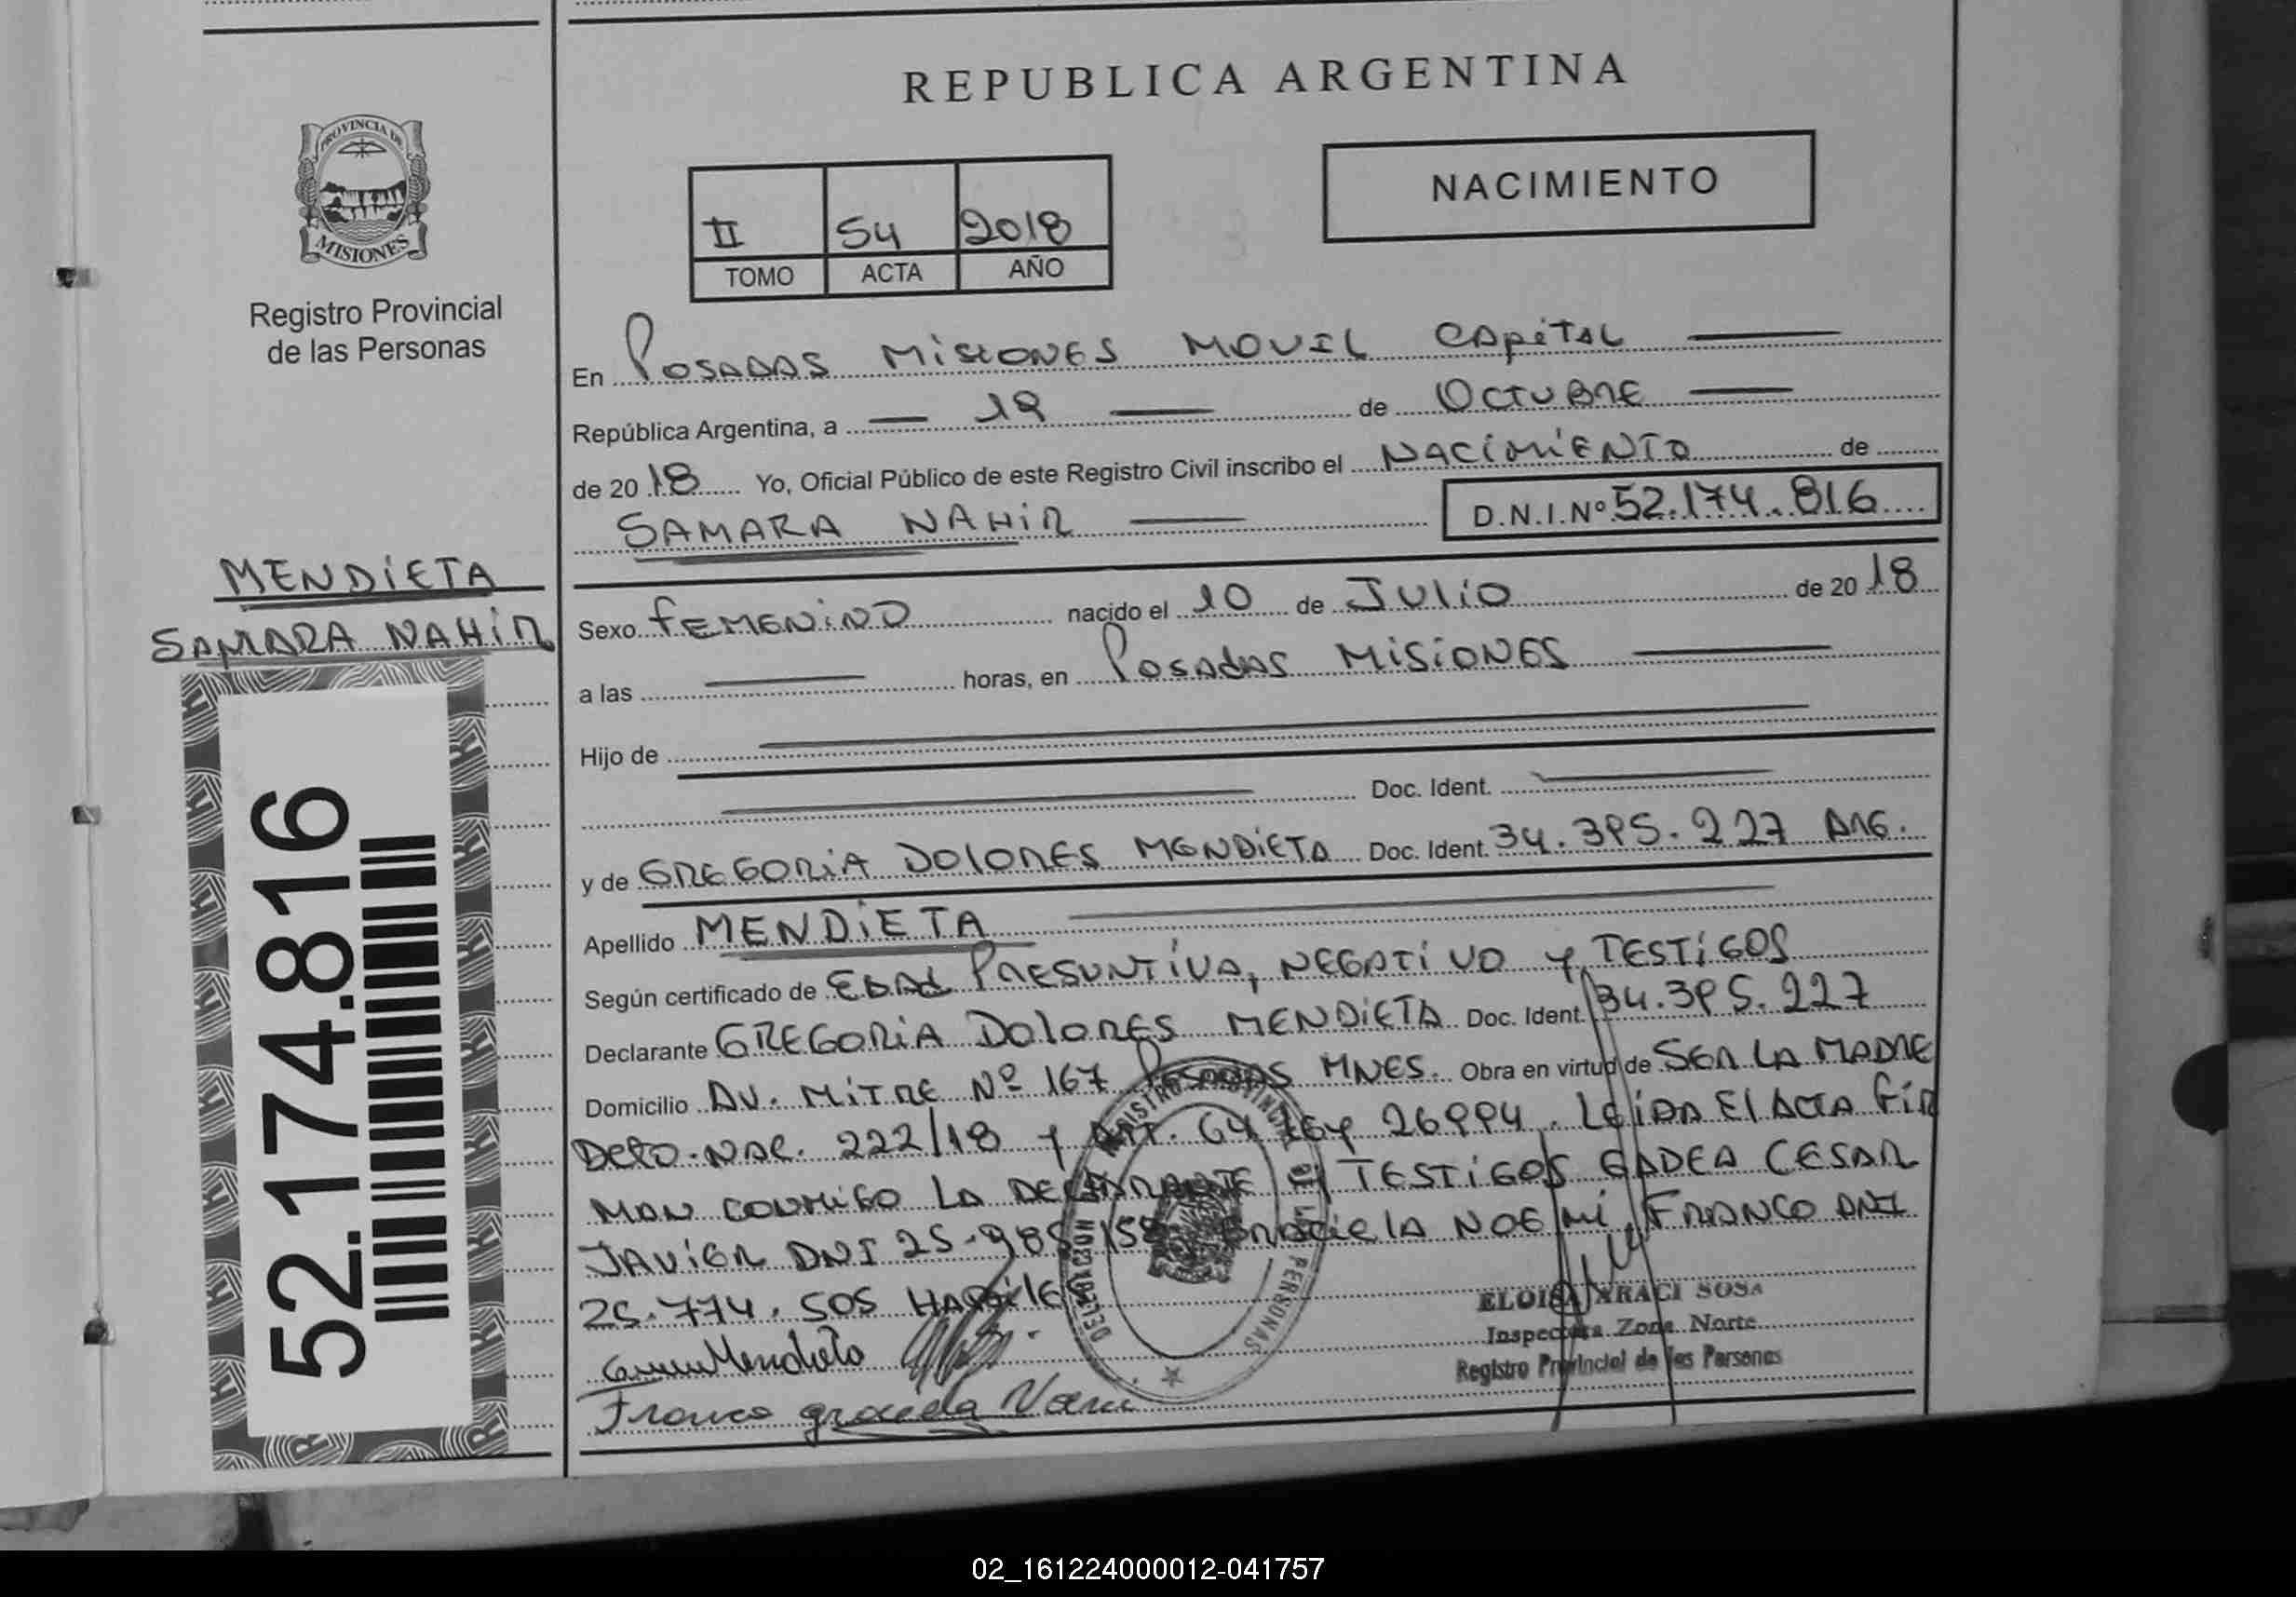 REPUBLICA ARGENTINA
PROVINCIA DE
MISIONES
Registro Provincial
de las Personas
NACIMIENTO
II 54 2018
TOMO ACTA AÑO
En POSADAS MISIONES MOVIL CAPITAL
República Argentina, a 19 de OCTUBRE
de 2018 Yo, Oficial Público de este Registro Civil inscribo el NACIMIENTO de
SAMARA NAHIR D.N.I.Nº 52.174.816
MENDIETA
SAMARA NAHIR
52.174.816
Sexo FEMENINO nacido el 10 de JULIO de 2018
a las horas, en POSADAS MISIONES
Hijo de
Doc. Ident.
y de GREGORIA DOLORES MENDIETA Doc. Ident. 34.395.227 ARG.
Apellido MENDIETA
Según certificado de EDAD PRESUNTIVA, NEGATIVO Y TESTIGOS
Declarante GREGORIA DOLORES MENDIETA Doc. Ident. 34.395.227
Domicilio AV. MITRE Nº 167 POSADAS MNES. Obra en virtud de SER LA MADRE
DCTO. NAC. 222/18 Y ART. 64 LEY 26994. LEIDA EL ACTA FIR
MAN CONMIGO LA DECLARANTE Y TESTIGOS GADEA CESAR
JAVIER DNI 25.988.158 GRACIELA NOEMI FRANCO DNI
25.774.505 HABILES
REGISTRO PROVINCIAL DE LAS PERSONAS
DELEGACION
ELOISA ARACI SOSA
Inspectora Zona Norte
Registro Provincial de las Personas
Mendieta
Franco graciela Noemi
02_161224000012-041757